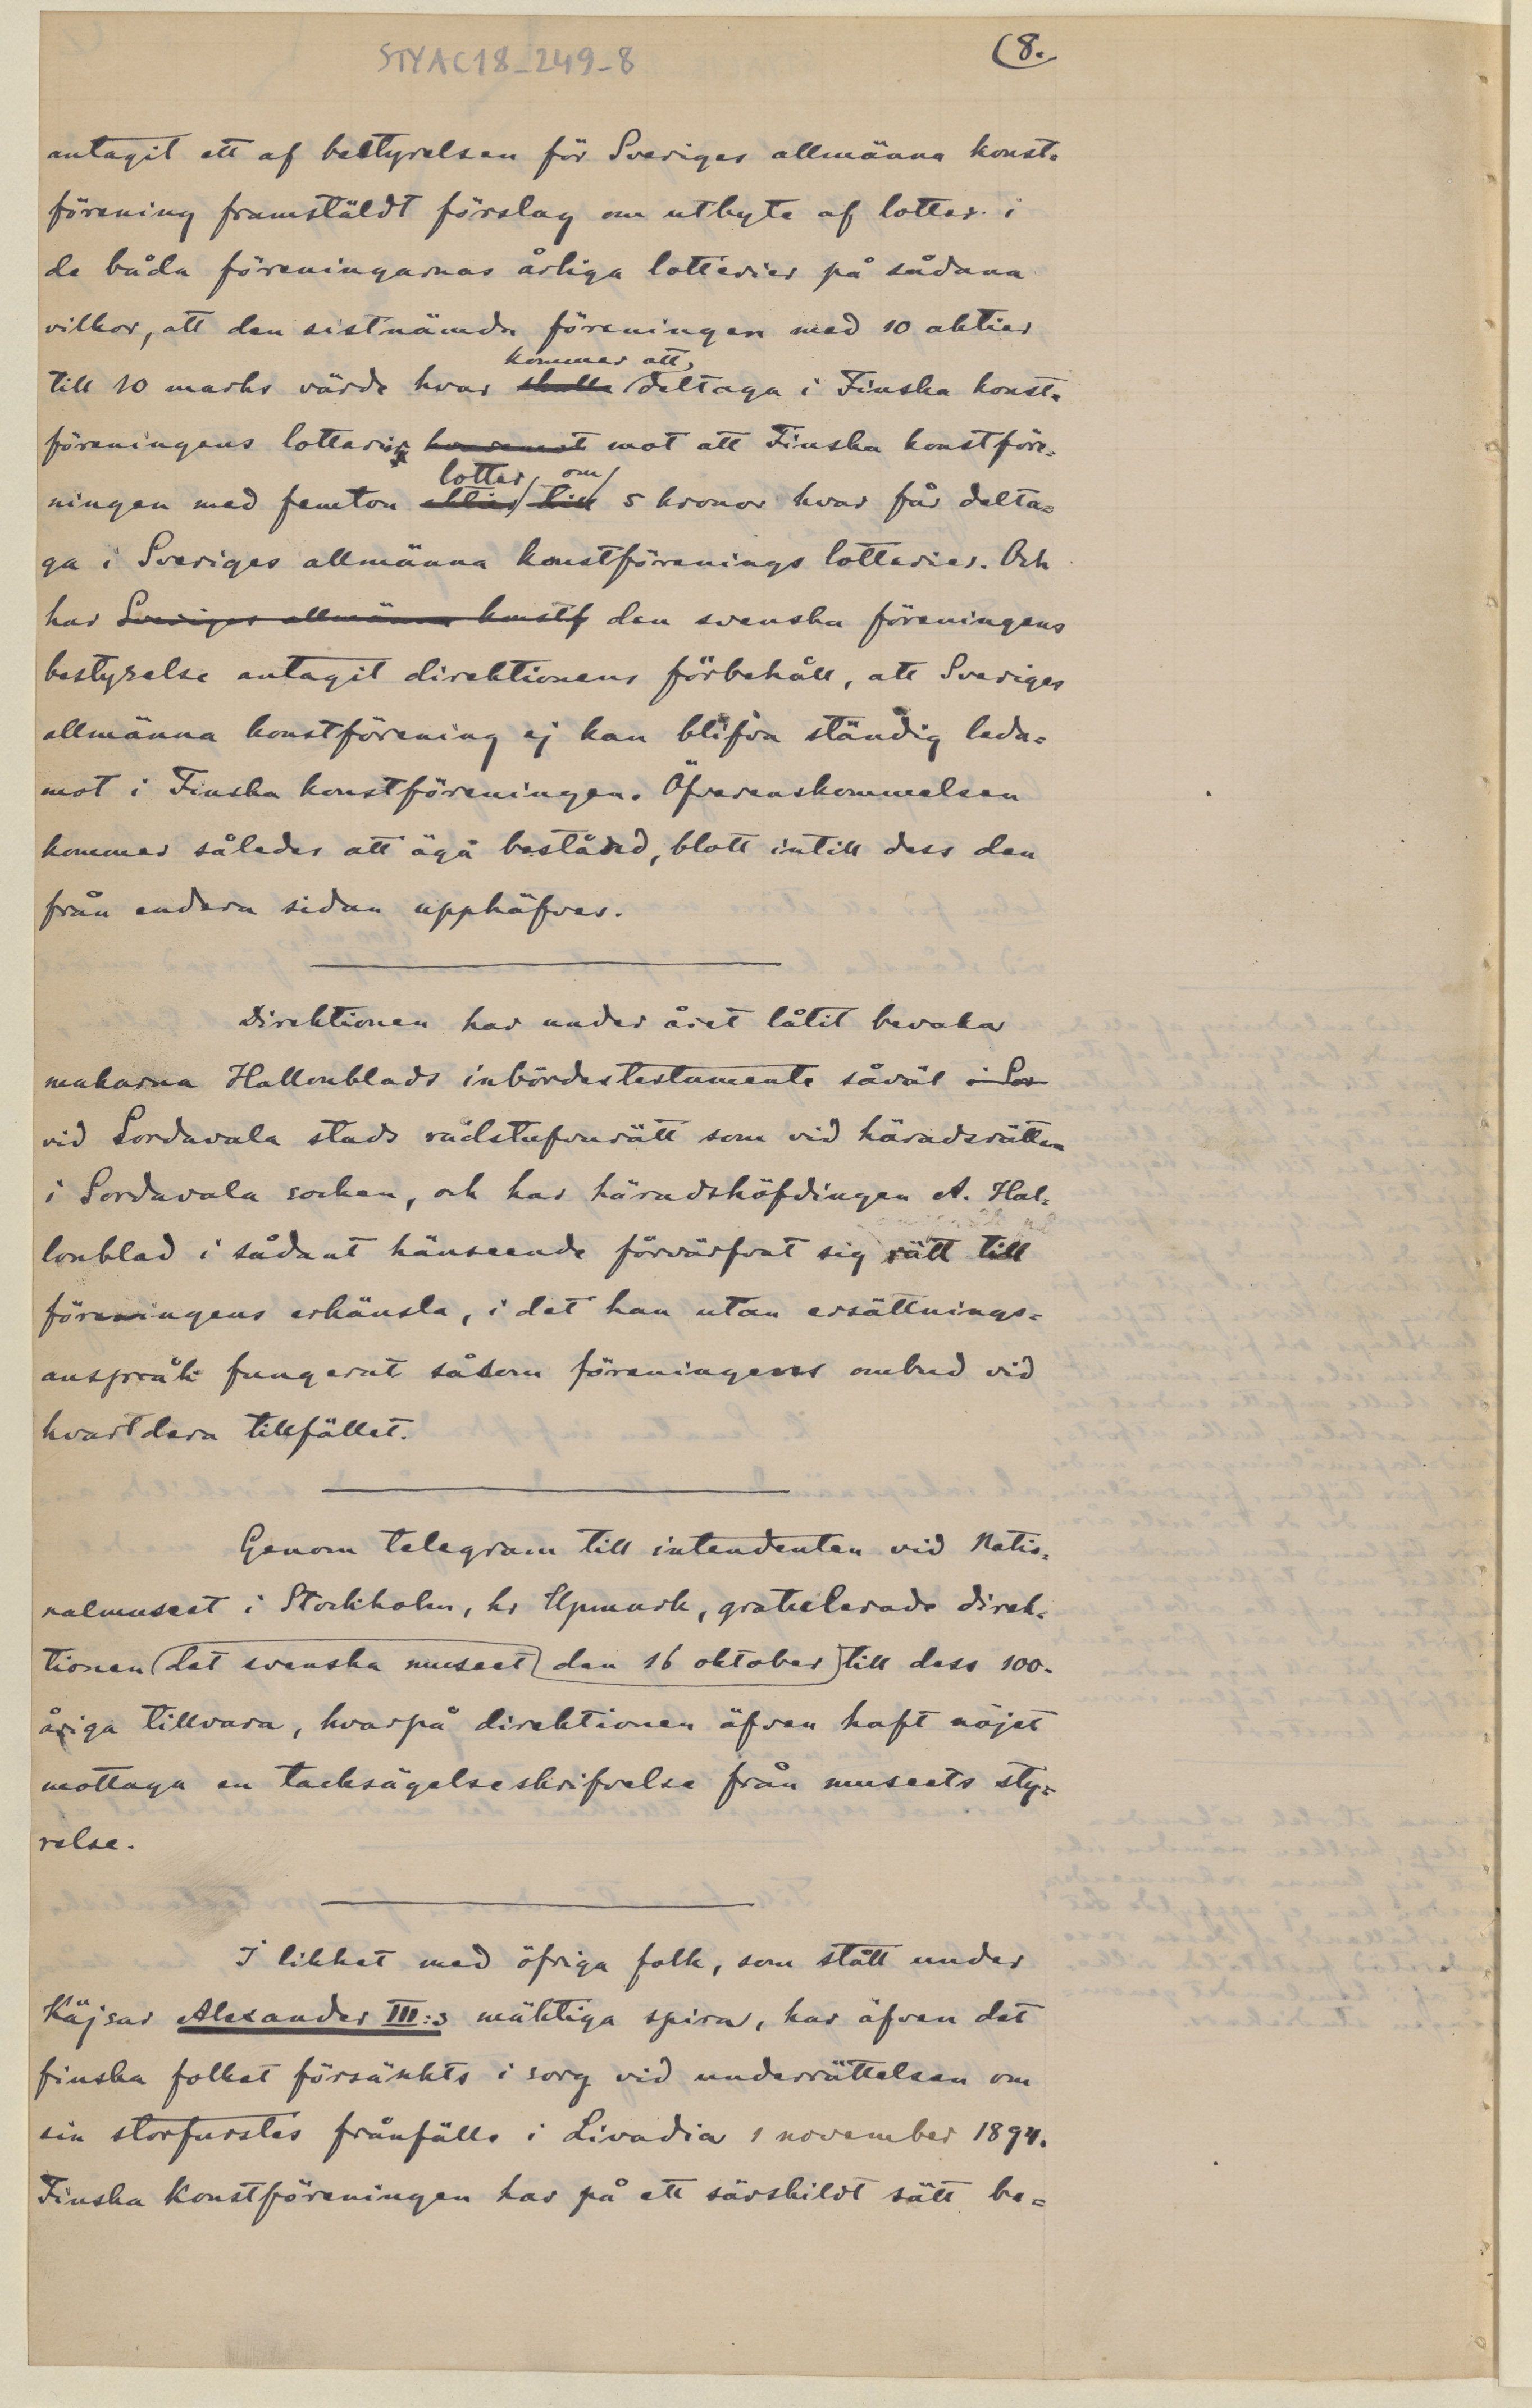 STYAC18_249_8
(8.
antagit ett af bestyrelsen för Sveriges allmänna konst-
förening framstäldt förslag om utbyte af lotter i
de båda föreningarnas årliga lotterier på sådana
vilkor, att den sistnämda föreningen med 10 aktier
kommer att
till 10 marks värde hvar skulle deltaga i Finska konst-
föreningens lotterier mot att Finska konstföre-
lotter om
ningen med femton aktier till 5 kronor hvar får delta-
ga i Sveriges allmänna konstförenings lotterier. Och
har Sveriges allmänna konstf den svenska föreningens
bestyrelse antagit direktionens förbehåll, att Sveriges
allmänna konstförening ej kan blifva ständig leda-
mot i Finska konstföreningen. Öfverenskommelsen
kommer således att äga bestånd, blott intill dess den
från endera sidan upphäfves.
Direktionen har under året låtit bevaka
makarna Hallonblads inbördestestamente såväl i Sor
vid Sordavala stads rådstufvurätt som vid häradsrätten
i Sordavala socken, och har häradshöfdingen A. Hal-
lonblad i sådant hänseende förvärfvat sig rätt till
föreningens erkänsla, i det han utan ersättnings-
anspråk fungerat såsom föreningens ombud vid
hvartdera tillfället.
Genom telegram till intendenten vid Natio-
nalmuseet i Stockholm, hr Upmark, gratulerade direk-
tionen (det svenska museet) den 16 oktober) till dess 100-
åriga tillvara, hvarpå direktionen äfven haft nöjet
mottaga en tacksägelseskrifvelse från museets sty-
relse.
I likhet med öfriga folk, som stått under
Käjsar Alexander III:s mäktiga spira, har äfven det
finska folket försänkts i sorg vid underrättelsen om
sin storfurstes frånfälle i Livadia 1 november 1894.
Finska Konstföreningen har på ett särskildt sätt be-